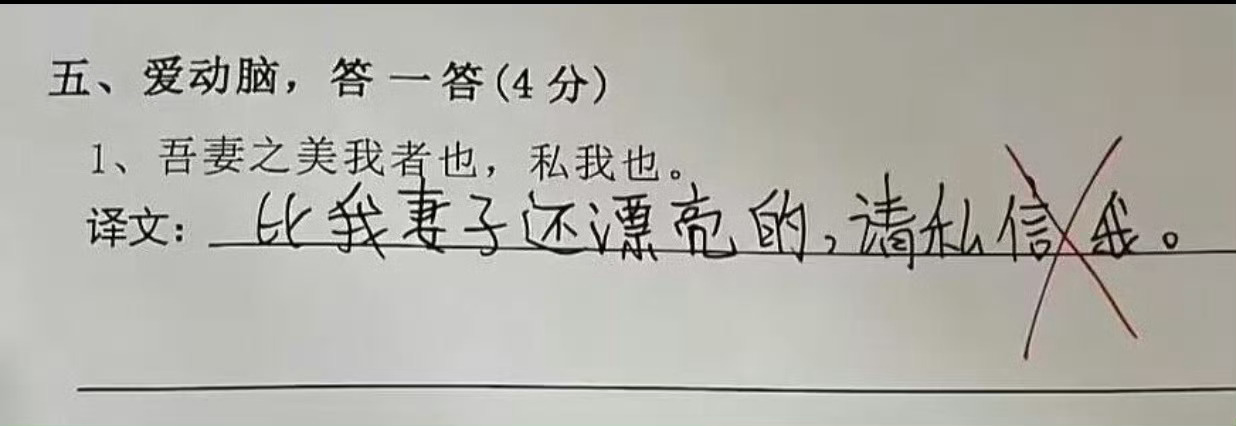 五、爱动脑，答一答(4分)
1、吾妻之美我者也，私我也。
译文：比我妻子还漂亮的，请私信我。